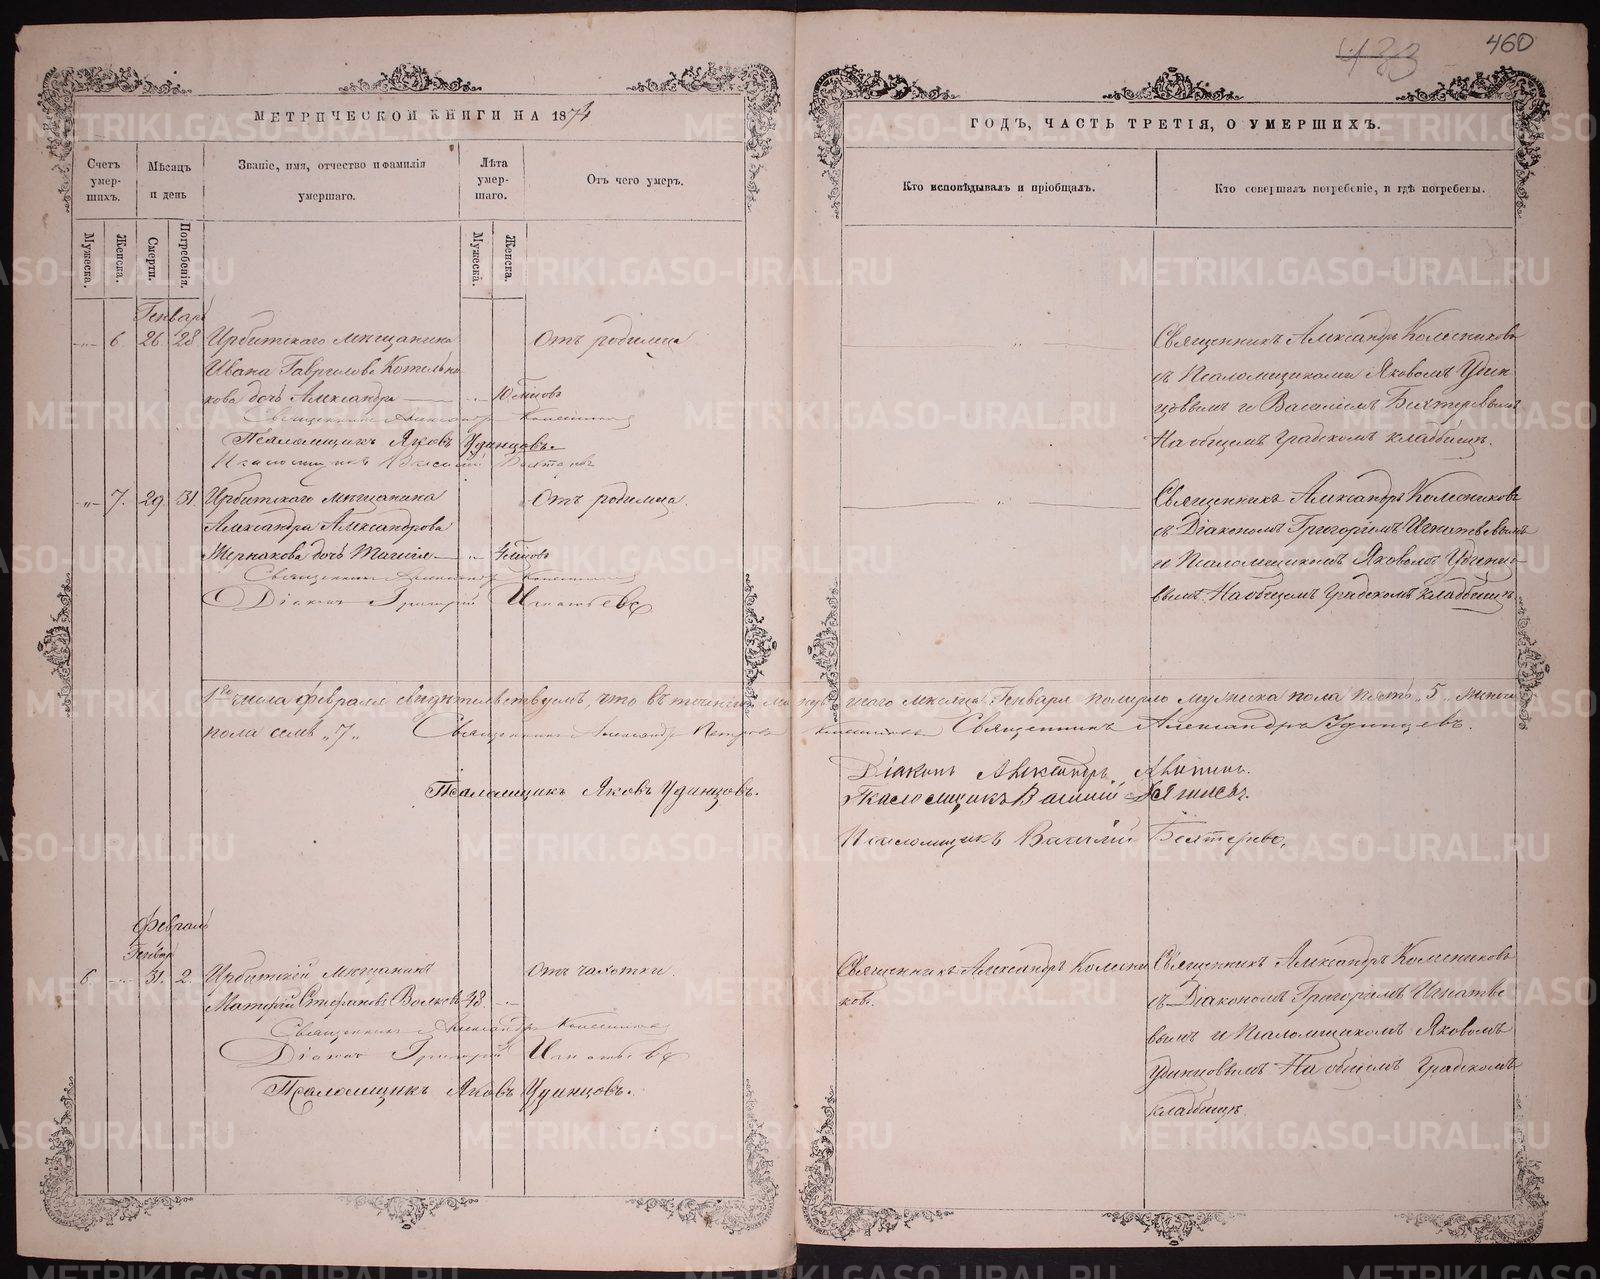 460
433
МЕТРИЧЕСКОЙ КНИГИ НА 1874
ГОДЪ, ЧАСТЬ ТРЕТІЯ, О УМЕРШИХЪ.
Счетъ умер-
шихъ.
Мѣсяцъ
и день
Званіе, имя, отчество и фамилія
умершаго.
Лѣта
умер-
шаго.
Отъ чего умеръ.
Кто исповѣдывалъ и пріобщалъ.
Кто совершалъ погребеніе, и гдѣ погребены.
Мужеска.
Женска.
Смерти.
Погребенія.
Мужеска.
Женска.
Генварь
6 26 28 Ирбитскаго мѣщанина
Ивана Гаврилова Котельни
кова дочь Александра
Отъ родимца
Священникъ Александръ Колесников
Псаломщикъ Яковъ Удинцовъ.
Псаломщикъ Василій
Священникъ Александръ Колесниковъ
съ Псаломщиками Яковомъ Удин
цовымъ и Василіемъ Бехтеревымъ
На общемъ градскомъ кладбищѣ.
7. 29. 31. Ирбитскаго мѣщанина
Александра Александрова
дочь
Отъ родимца.
Священникъ Александръ
Діаконъ Григорій Игнатьевъ
Священникъ Александръ Колесниковъ
съ Діакономъ Григоріемъ Игнатьевымъ
и Псаломщикомъ Яковомъ Удинцо-
вымъ. На общемъ градскомъ кладбищѣ
1го числа февраля свидѣтельствуемъ, что въ теченіи минувшаго мѣсяца Генваря померло мужеска пола пять „5„ женска
пола семь „7„ Священникъ Александръ Петровъ Колесниковъ Священникъ Александръ Удинцевъ.
Псаломщикъ Яковъ Удинцовъ.
Діаконъ Александръ
Псаломщикъ Василій
Псаломщикъ Василій Бехтеревъ.
Февраль
Генвар
6 31. 2. Ирбитскій мѣщанинъ
Матфій Стефановъ Волковъ 48
Отъ чахотки.
Священникъ Александръ
Діаконъ Григорій Игнатьевъ
Псаломщикъ Яковъ Удинцовъ.
Священникъ Александръ Колесни
ковъ.
Священникъ Александръ Колесниковъ
съ Діакономъ Григоріемъ Игнатье
вымъ и Псаломщикомъ Яковомъ
Удинцовымъ На общемъ градскомъ
кладбищѣ.
METRIKI.GASO-URAL.RU